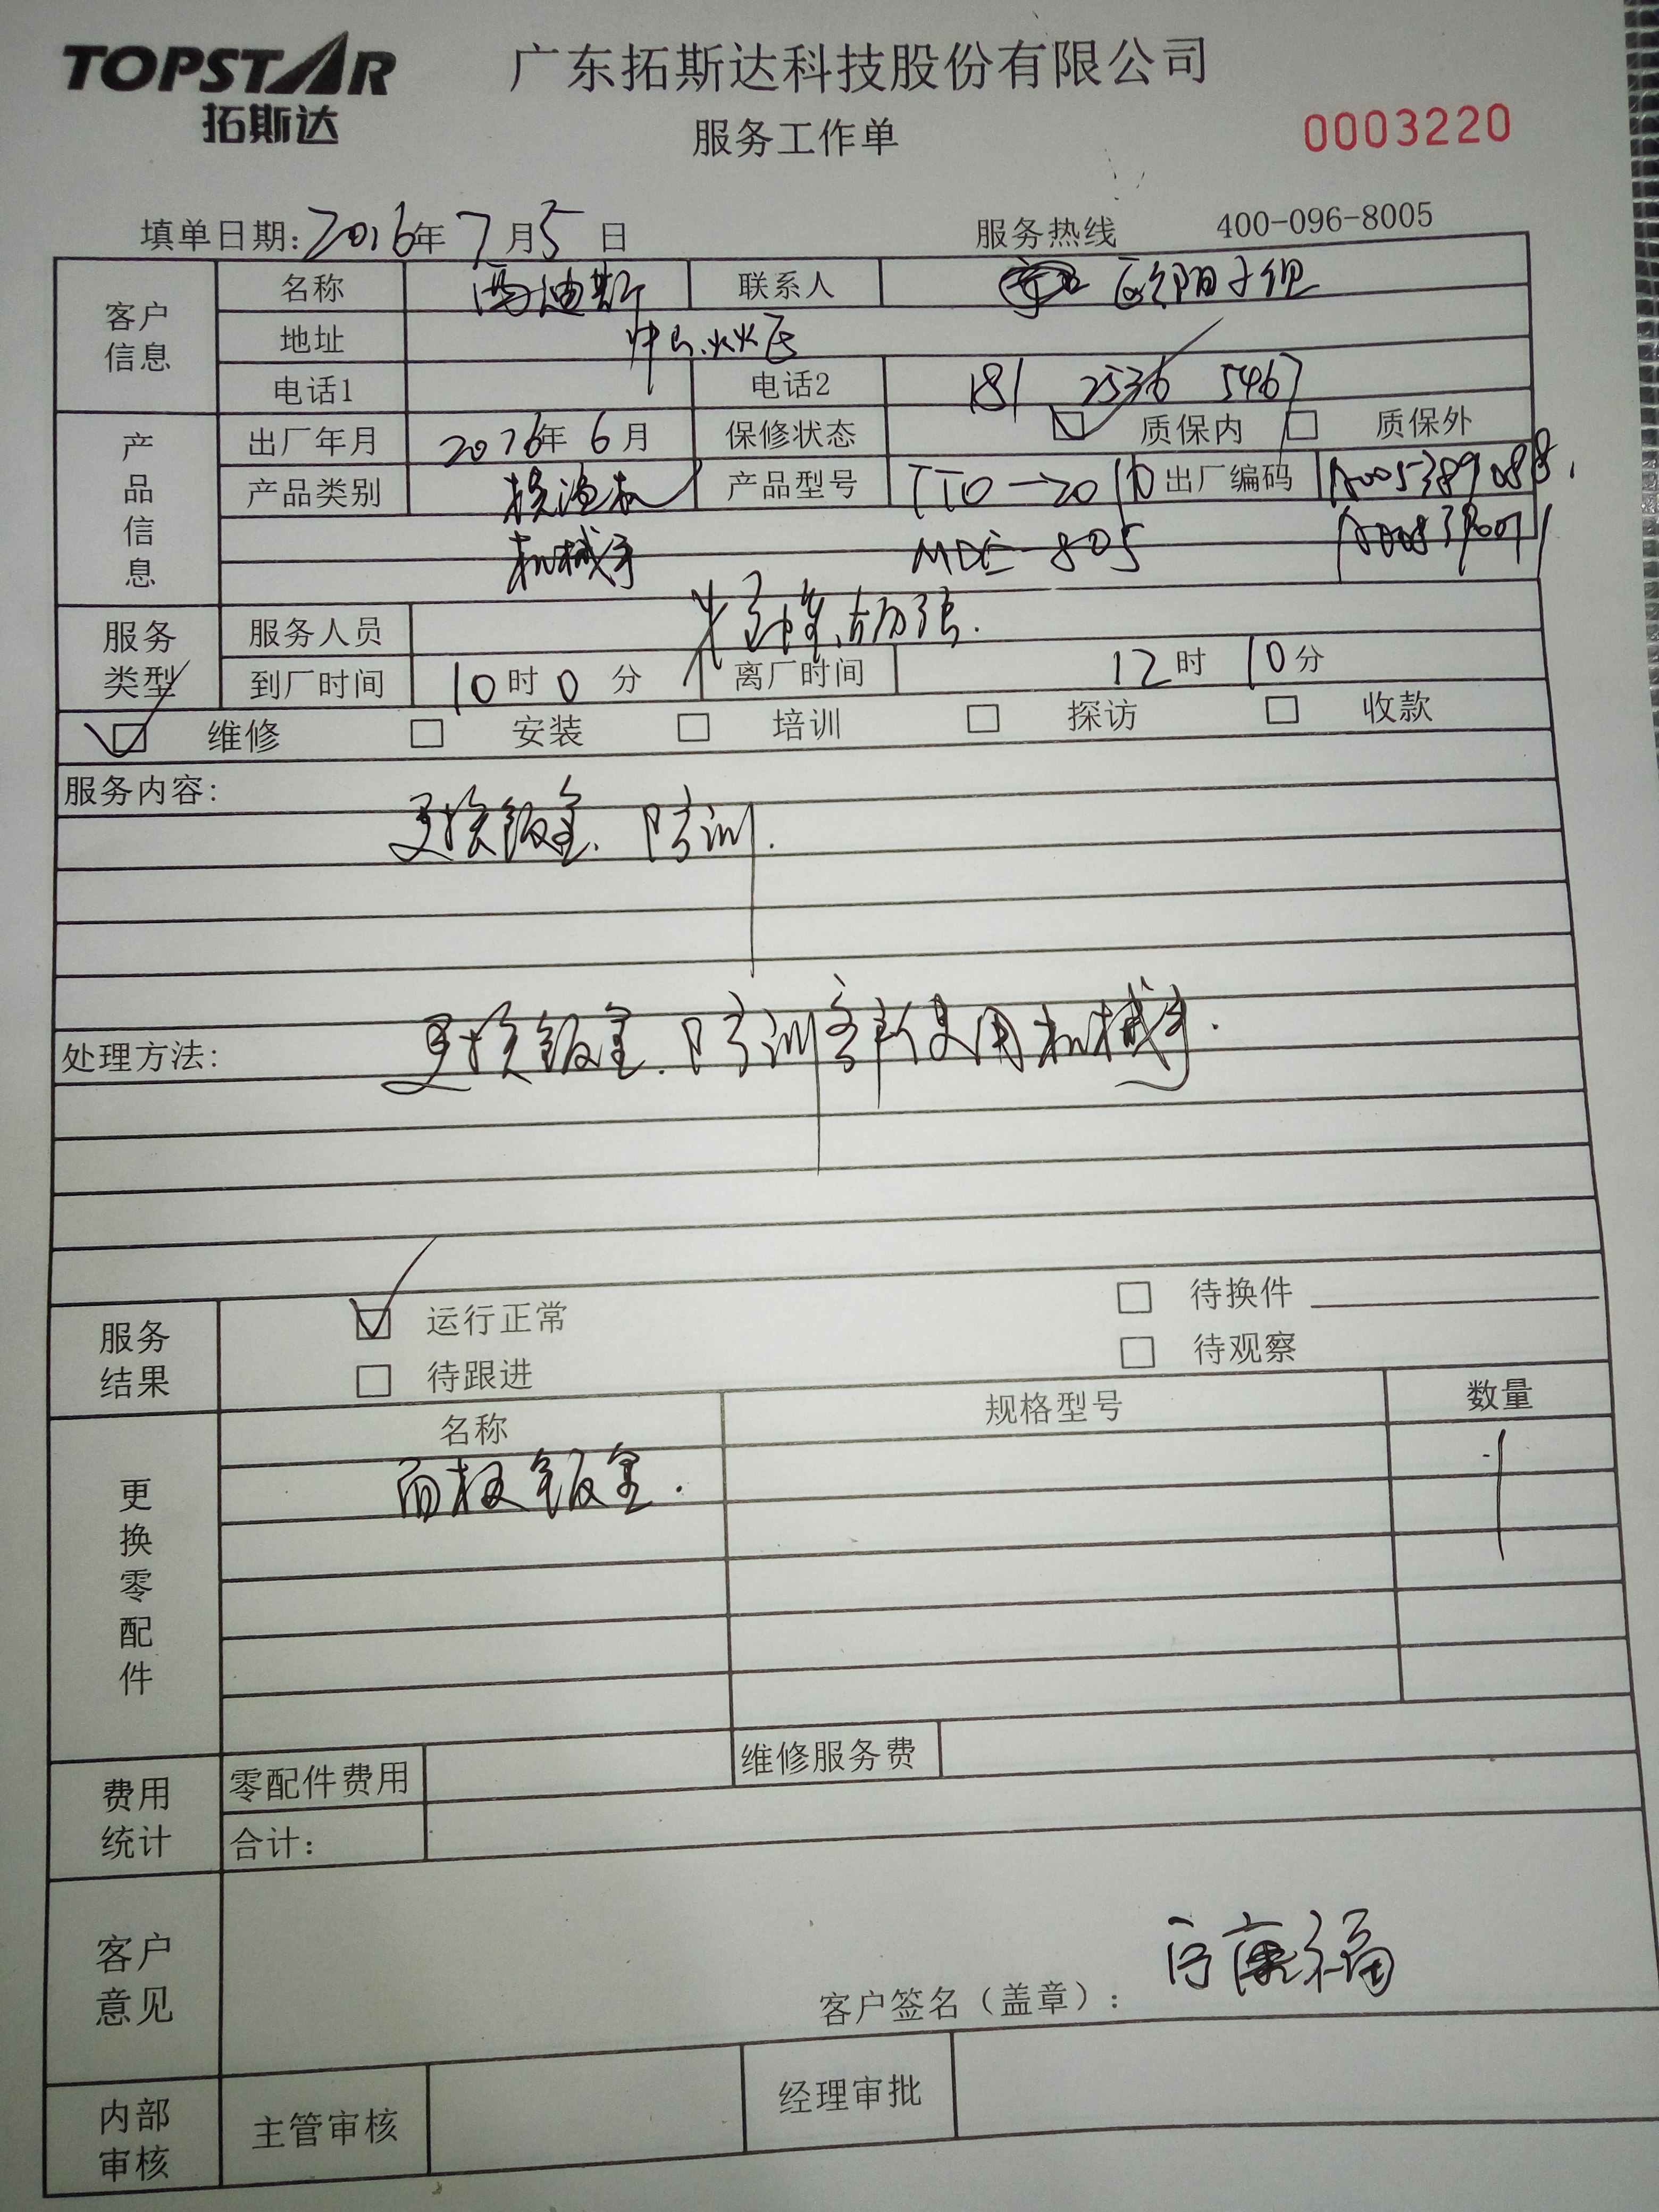 TOPSTAR
拓斯达
广东拓斯达科技股份有限公司
服务工作单
0003220
填单日期: 2016年 7月 5日 服务热线 400-096-8005
客户信息
名称 迪斯 联系人 欧阳
地址 中山火炬
电话1 电话2 181 2536 5467
产品信息
出厂年月 2016年 6月 保修状态 质保内 质保外
产品类别 模温机 产品型号 出厂编码
机械手
服务类型
服务人员
到厂时间 10时 0分 离厂时间 12时 10分
维修 安装 培训 探访 收款
服务内容:
更换钣金. 培训.
处理方法: 更换钣金. 培训客户使用机械手.
服务结果
运行正常 待换件
待跟进 待观察
更换零配件
名称 规格型号 数量
面板钣金. 1
费用统计
零配件费用 维修服务费
合计:
客户意见
客户签名（盖章）: 康福
内部审核
主管审核 经理审批